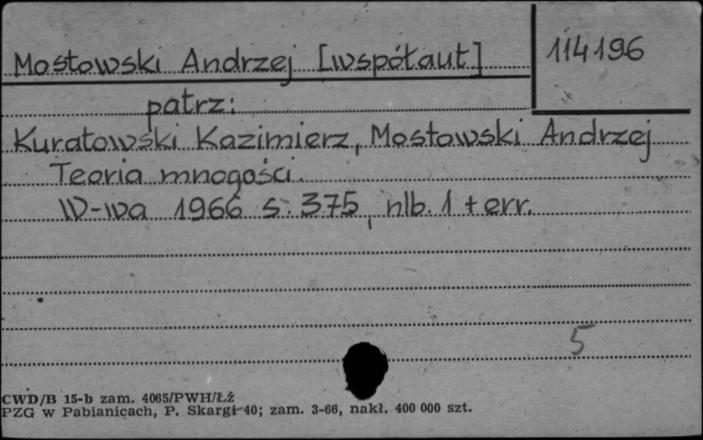 Mostowski Andrzej [współaut]
114196
patrz:
Kuratowski Kazimierz, Mostowski Andrzej
Teoria mnogości.
W-wa 1966 s. 375, nlb. 1 + err.
5
CWD/B 15-b zam. 4065/PWH/Łź
PZG w Pabianicach, P. Skargi 40; zam. 3-66, nakł. 400 000 szt.